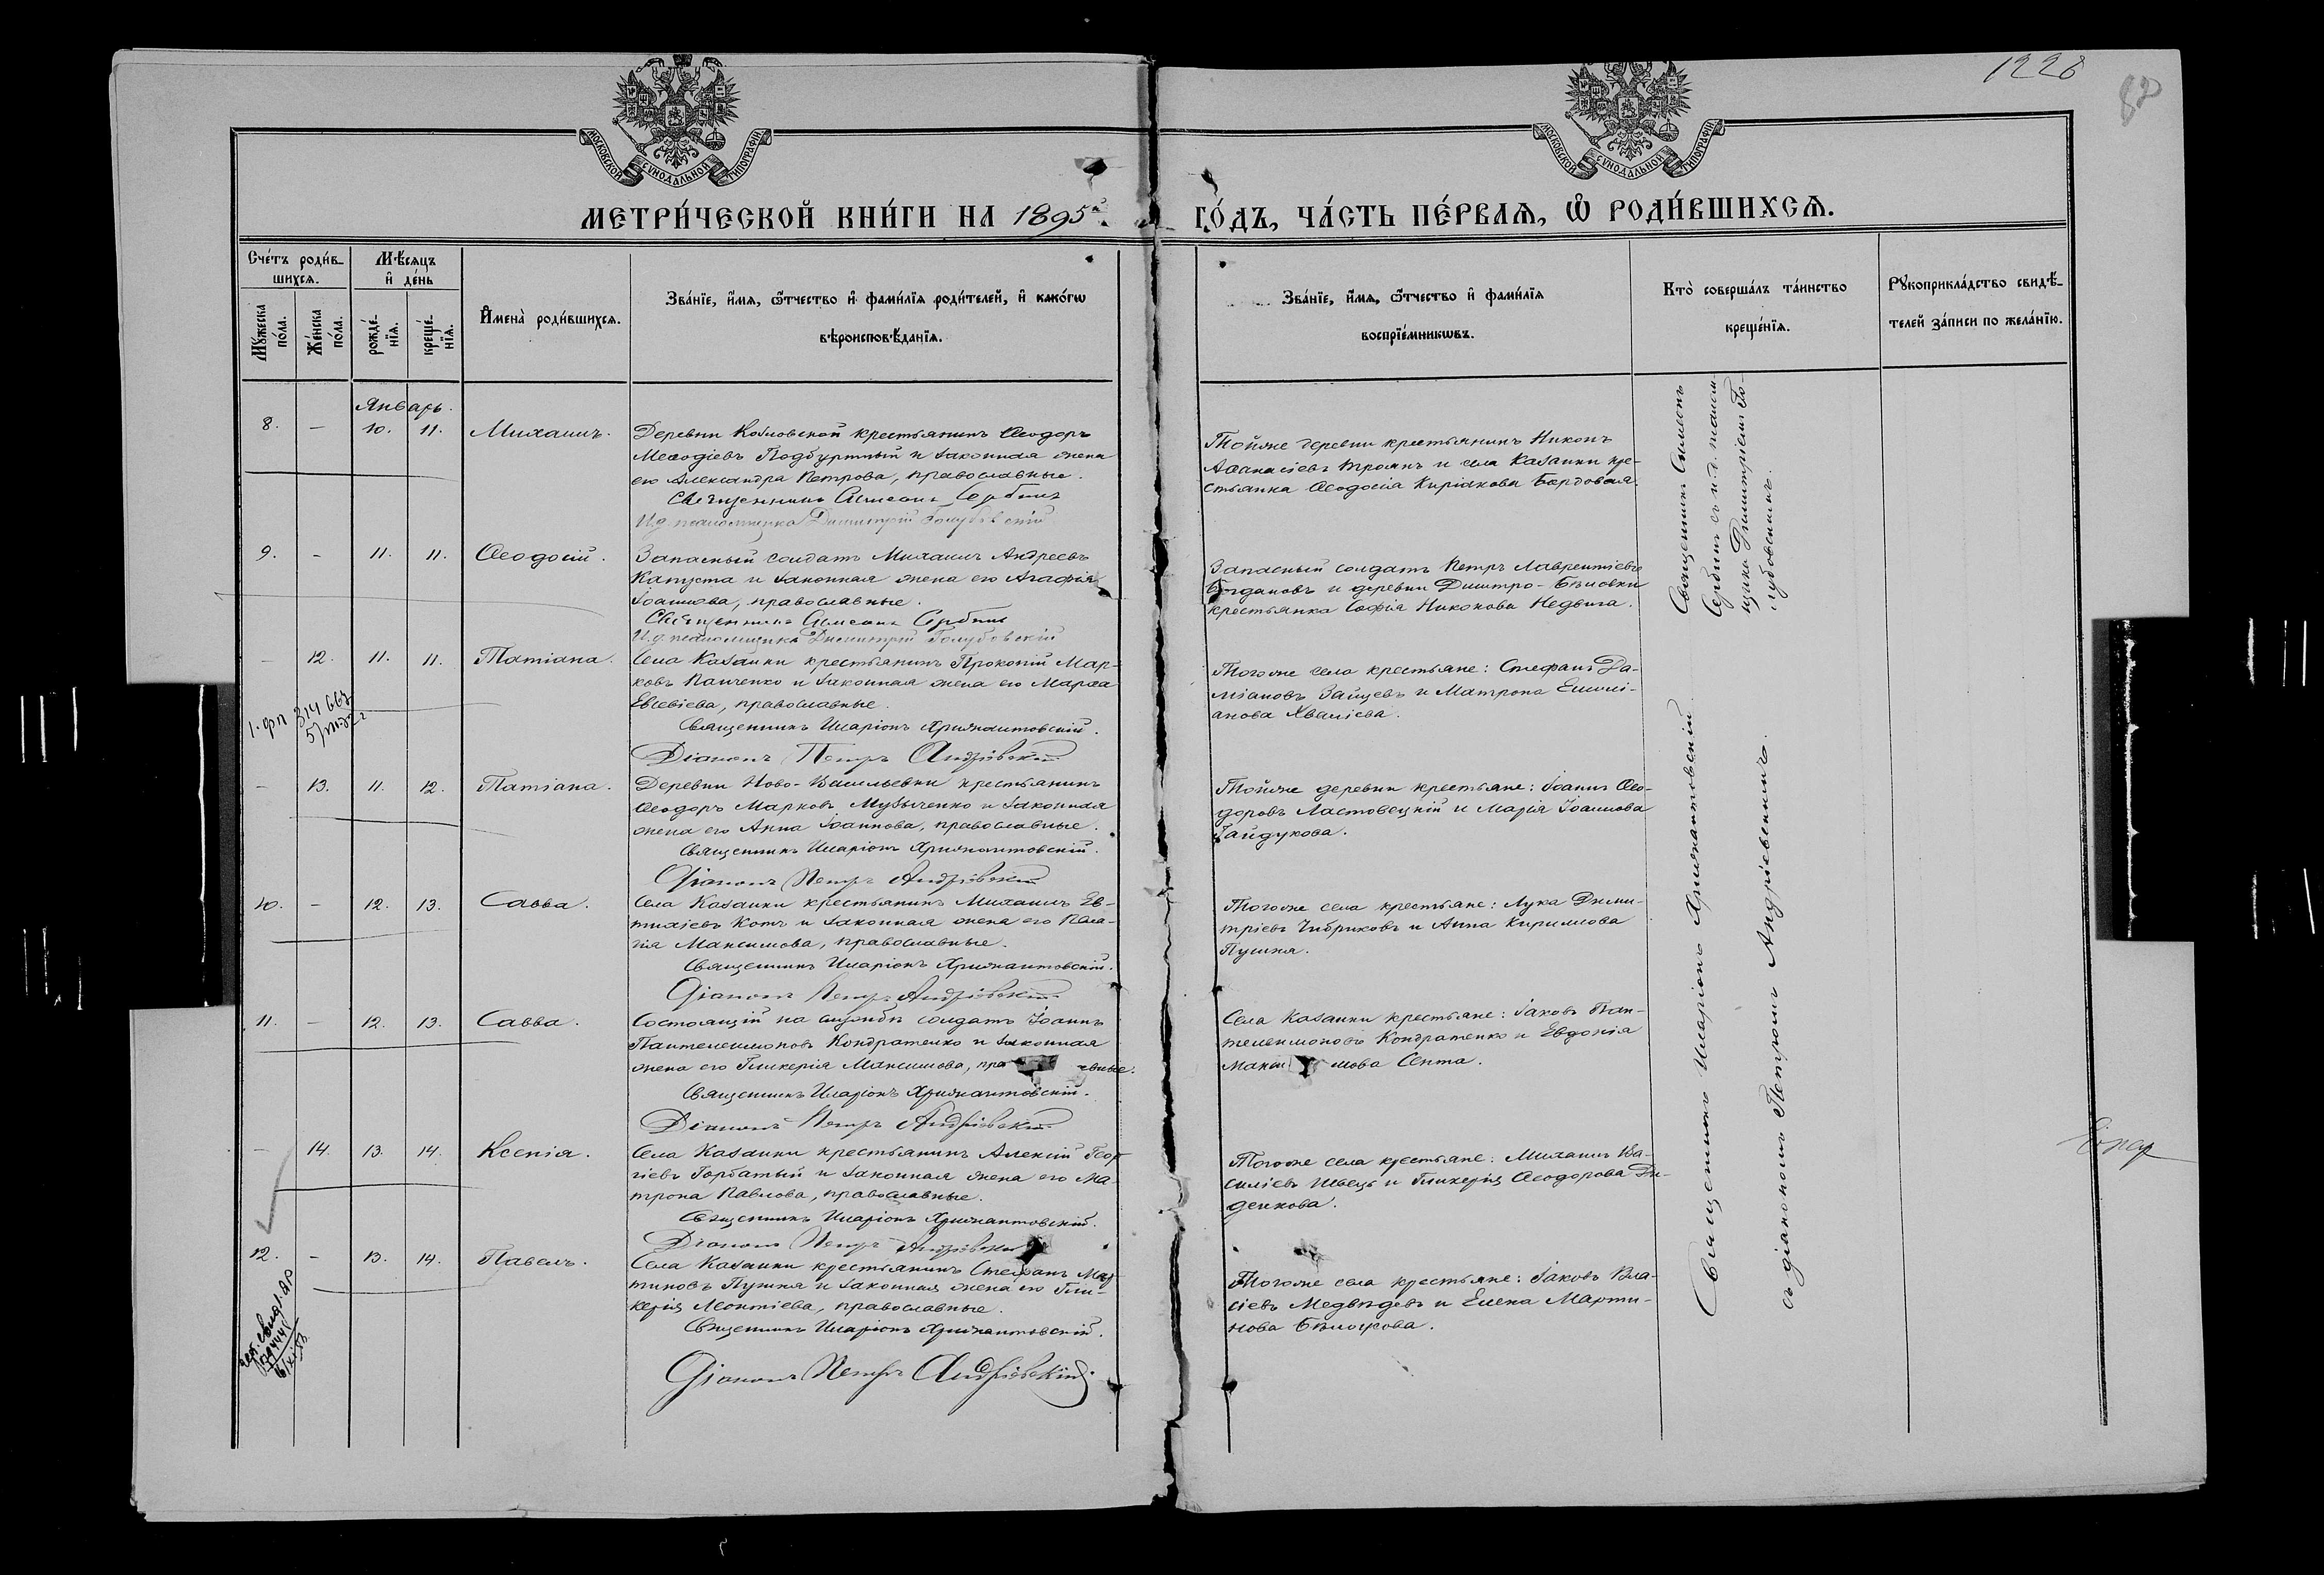 1226
82
МОСКОВСКОЙ СѴНОДАЛЬНОЙ ТИПОГРАФІИ
МОСКОВСКОЙ СѴНОДАЛЬНОЙ ТИПОГРАФІИ
МЕТРИ́ЧЕСКОЙ КНИ́ГИ НА 1895й ГО́ДЪ, ЧА́СТЬ ПЕ́РВАѦ, Ѡ РОДИ́ВШИХСѦ.
Сче́тъ роди́в-
шихсѧ.
Мꙋ́жеска по́ла.
Же́нска по́ла.
Мѣ́сѧцъ
и де́нь
рожде́-
нїѧ.
креще́-
нїѧ.
Имена̀ роди́вшихсѧ.
Зва́нїе, и́мѧ, ѻ́тчество и фами́лїѧ роди́телей, и како́гѡ
вѣроисповѣ́данїѧ.
Зва́нїе, и́мѧ, ѻ́тчество и фами́лїѧ
воспрїе́мникѡвъ.
Кто̀ соверша́лъ та́инство
креще́нїѧ.
Рꙋкоприкла́дство свидѣ́-
телей за́писи по жела́нїю.
Январь.
8. — 10. 11. Михаилъ.
Деревни Козловской крестьянинъ Ѳеодоръ
Меѳодіевъ Подбуртный и законная жена
его Александра Петрова, православные.
Священникъ Симеонъ Сербинъ
И.д. псаломщика Димитрій Голубовскій
Тойже деревни крестьянинъ Никонъ
Аѳанасіевъ Троянъ и села Казанки кре-
стьянка Ѳеодосія Киріакова Бардовая.
9. — 11. 11. Ѳеодосій.
Запасный солдатъ Михаилъ Андреевъ
Капуста и законная жена его Агафія
Іоаннова, православные.
Священникъ Симеонъ Сербинъ
И.д. псаломщика Димитрій Голубовскій
Запасный солдатъ Петръ Лаврентіевъ
Богдановъ и деревни Дмитро-Бѣловки
крестьянка Софія Никонова Недвига.
Священникъ Симеонъ
Сербинъ съ и.д. псалом-
щика Димитріемъ Го-
лубовскимъ.
— 12. 11. 11. Татіана.
Села Казанки крестьянинъ Прокопій Мар-
ковъ Панченко и законная жена его Марѳа
Евсевіева, православные.
Священникъ Иларіонъ Хрижантовскій.
Діаконъ Петръ Андріевскій
Тогоже села крестьяне: Стефанъ Да-
міановъ Зайцевъ и Матрона Емилі-
анова Хваліева.
— 13. 11. 12. Татіана.
Деревни Ново-Васильевки крестьянинъ
Ѳеодоръ Марковъ Музыченко и законная
жена его Анна Іоаннова, православные.
Священникъ Иларіонъ Хрижантовскій.
Діаконъ Петръ Андріевскій
Тойже деревни крестьяне: Іоаннъ Ѳео-
доровъ Ластовецкій и Марія Іоаннова
Гайдукова.
10. — 12. 13. Савва.
Села Казанки крестьянинъ Михаилъ Ев-
тихіевъ Котъ и законная жена его Пела-
гія Максимова, православные.
Священникъ Иларіонъ Хрижантовскій.
Діаконъ Петръ Андріевскій
Тогоже села крестьяне: Лука Дими-
тріевъ Чибриковъ и Анна Кириллова
Пушня.
11. — 12. 13. Савва.
Состоящій на службѣ солдатъ Іоаннъ
Пантелеимоновъ Кондратенко и законная
жена его Гликерія Максимова, пра вные.
Священникъ Иларіонъ Хрижантовскій.
Діаконъ Петръ Андріевскій
Села Казанки крестьяне: Іаковъ Пан-
телеимоновъ Кондратенко и Евдокія
Макси мова Септа.
— 14. 13. 14. Ксенія.
Села Казанки крестьянинъ Алексій Геор-
гіевъ Горбатый и законная жена его Ма-
трона Павлова, православные.
Священникъ Иларіонъ Хрижантовскій.
Діаконъ Петръ Андріевскій
Тогоже села крестьяне: Михаилъ Ва-
силіевъ Швецъ и Гликерія Ѳеодорова Ди-
денкова.
12. — 13. 14. Павелъ.
Села Казанки крестьянинъ Стефанъ Мар-
тиновъ Пушня и законная жена его Гли-
керія Леонтіева, православные.
Священникъ Иларіонъ Хрижантовскій.
Діаконъ Петръ Андріевскій.
Тогоже села крестьяне: Іаковъ Вла-
сіевъ Медвѣдевъ и Елена Марти-
нова Бѣлоусова.
Священникъ Иларіонъ Хрижантовскій
съ діакономъ Петромъ Андріевскимъ.